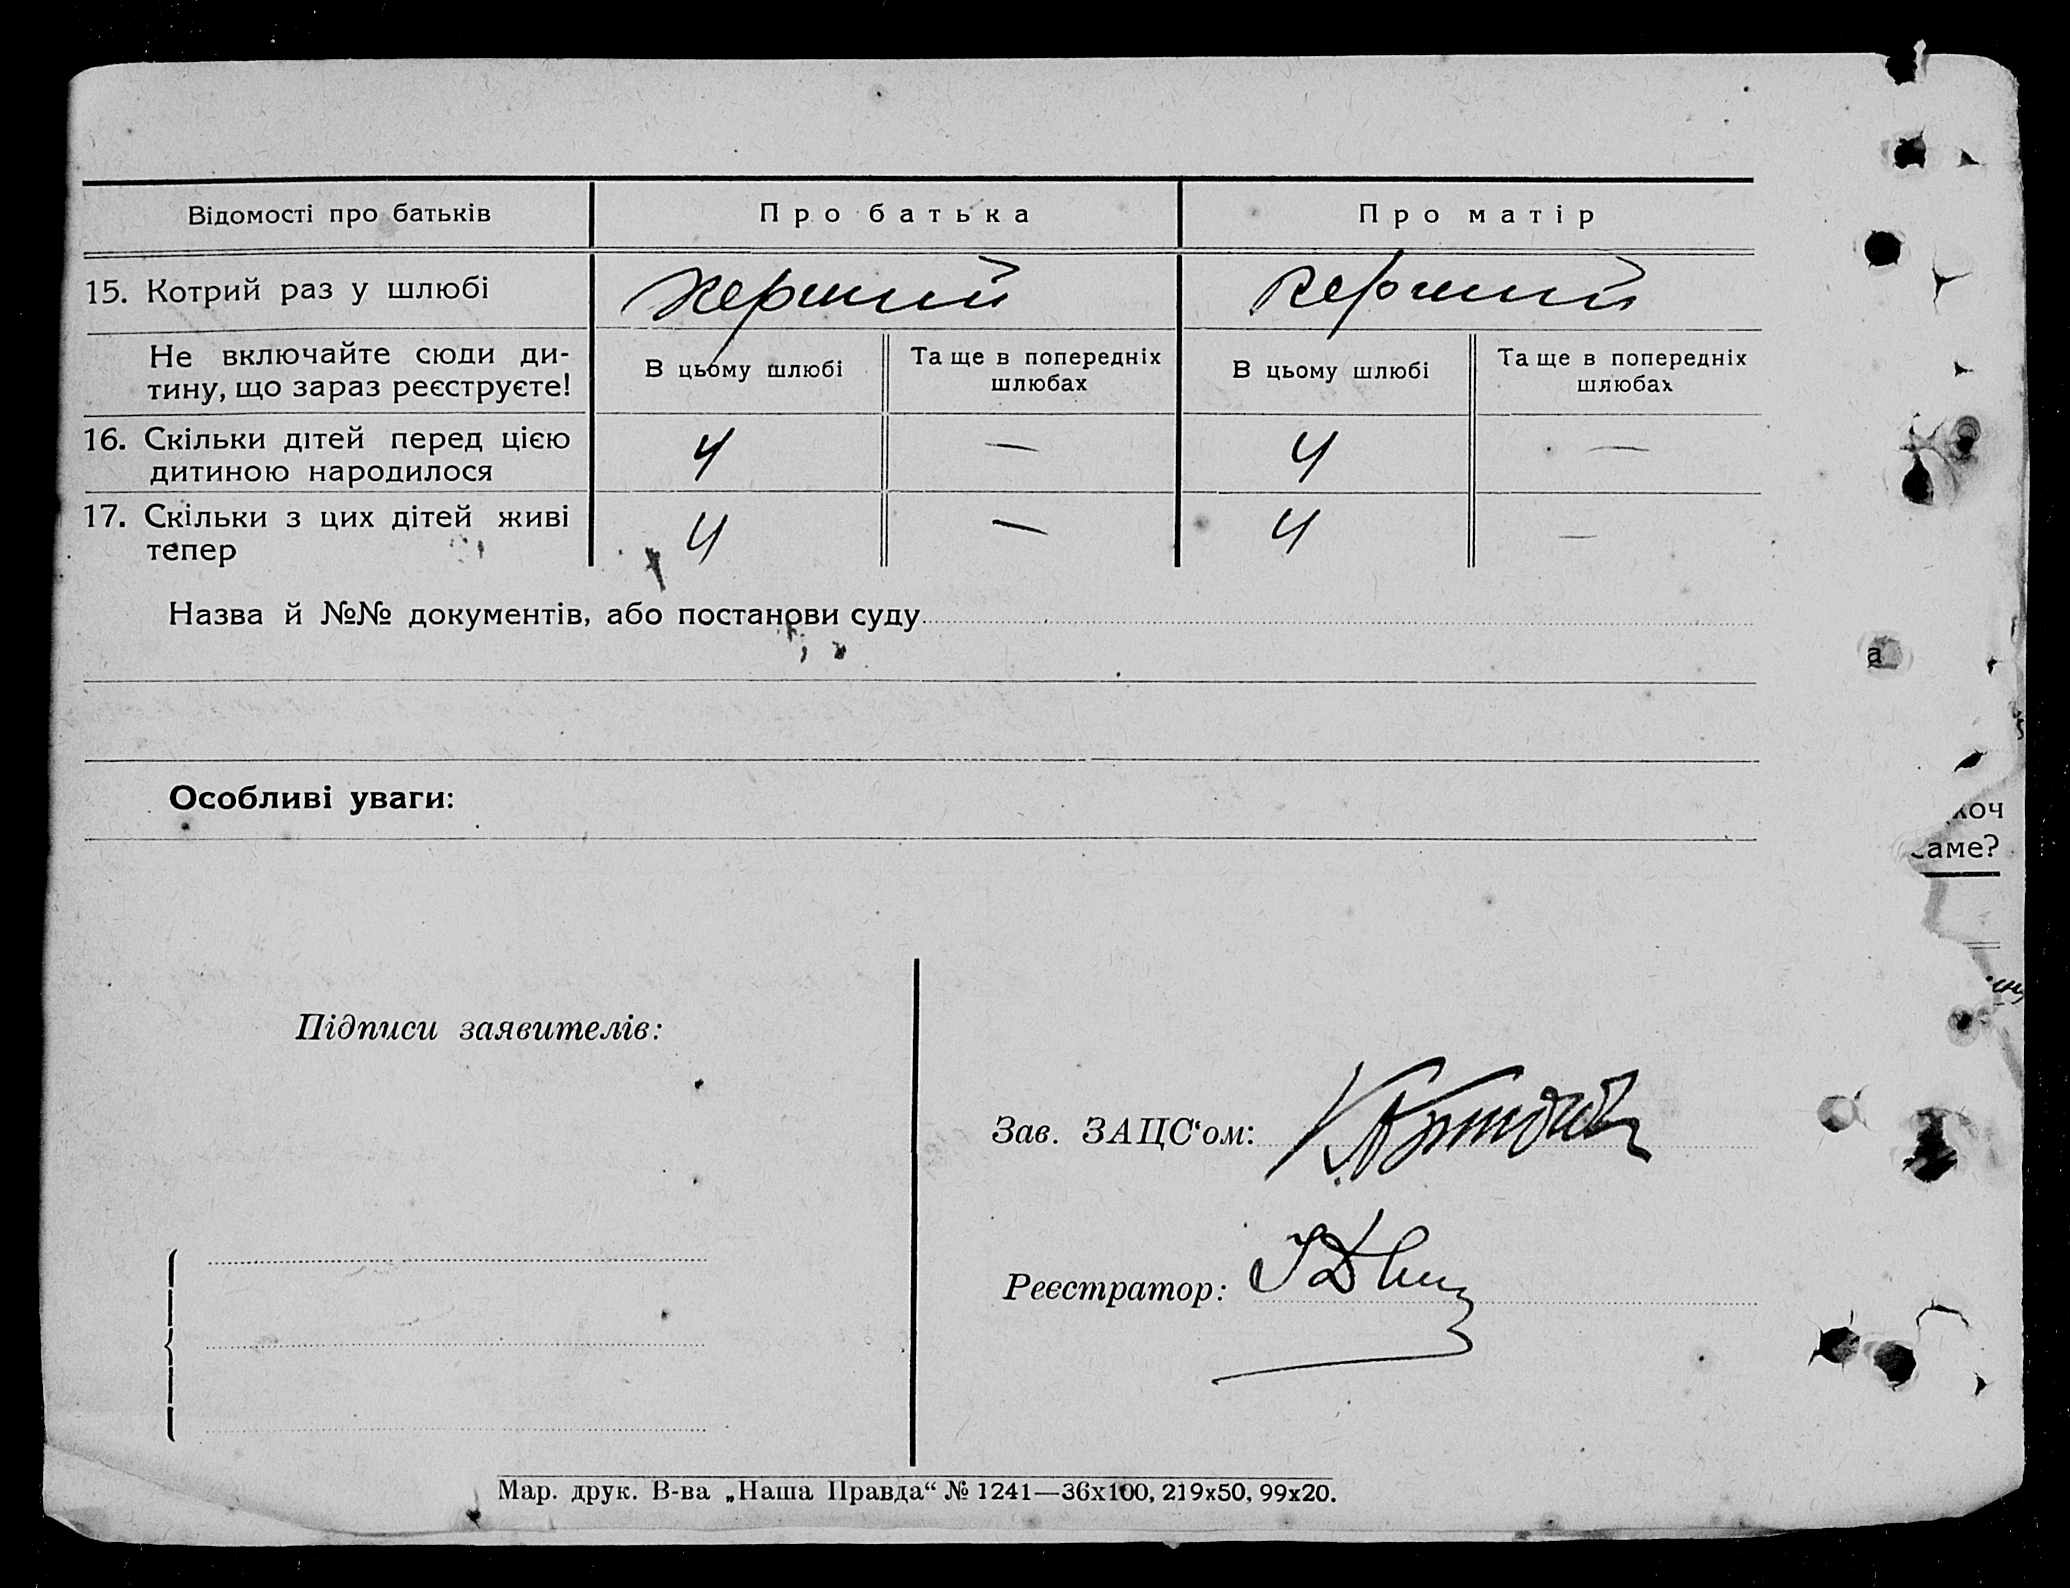 Відомості про батьків Про батька Про матір
15. Котрий раз у шлюбі перший перший
Не включайте сюди ди-
тину, що зараз реєструєте!
В цьому шлюбі Та ще в попередніх
шлюбах
В цьому шлюбі Та ще в попередніх
шлюбах
16. Скільки дітей перед цією
дитиною народилося
4 — 4 —
17. Скільки з цих дітей живі
тепер
4 — 4 —
Назва й №№ документів, або постанови суду
а
Особливі уваги:
хоч
саме?
Підписи заявителів:
Зав. ЗАЦС‘ом:
Реєстратор:
Мар. друк. В-ва „Наша Правда“ № 1241—36х100, 219х50, 99х20.